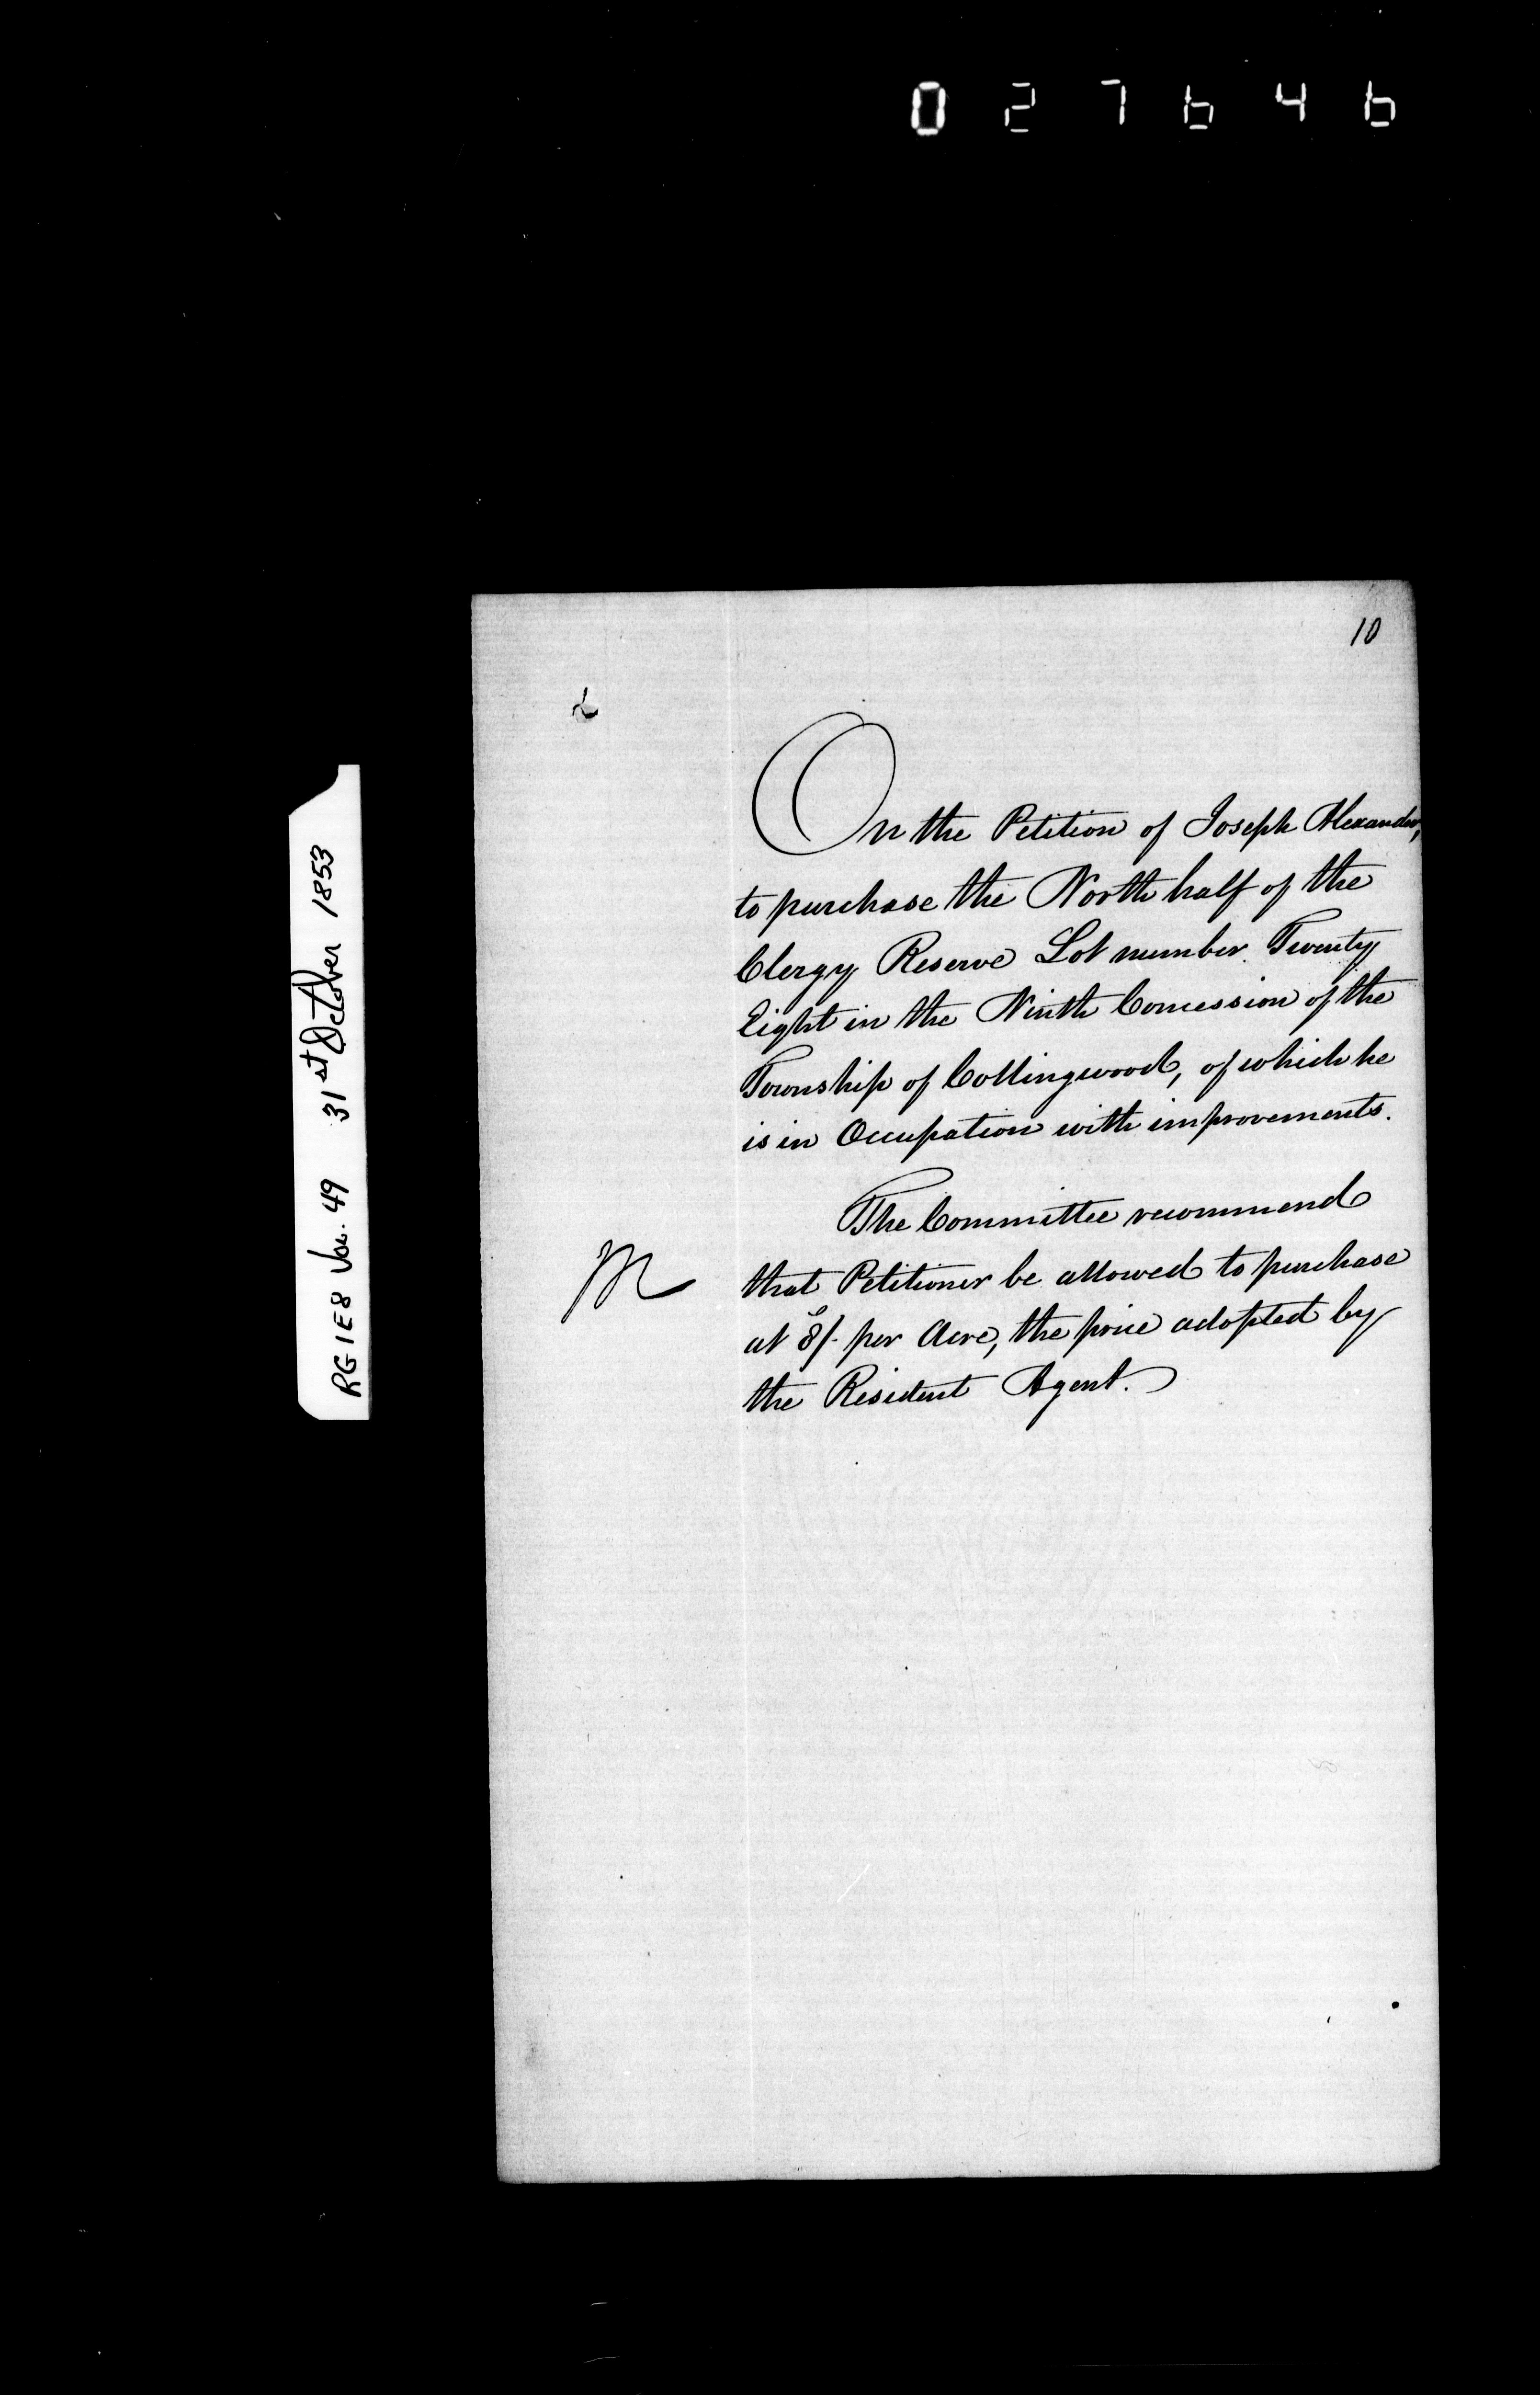 027646
10
RG 1 E8 Vol. 49 31st October 1853
On the Petition of Joseph Alexander,
to purchase the North half of the
Clergy Reserve Lot number Twenty
Eight in the Ninth Concession of the
Township of Collingwood, of which he
is in Occupation with improvements.
The Committee recommend
M
that Petitioner be allowed to purchase
at 8/- per Acre, the price adopted by
the Resident Agent.